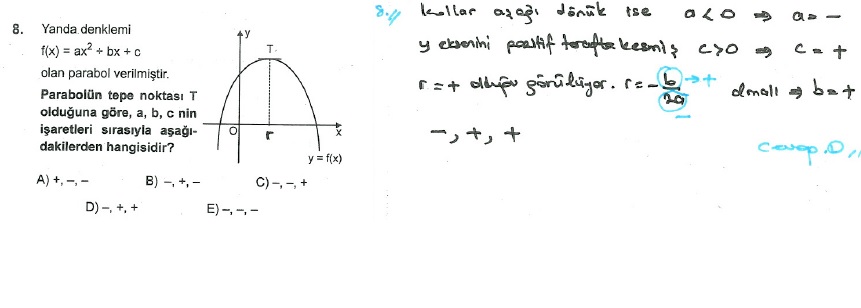 8. Yanda denklemi
f(x) = ax² + bx + c
olan parabol verilmiştir.
Parabolün tepe noktası T
olduğuna göre, a, b, c nin
işaretleri sırasıyla aşağı-
dakilerden hangisidir?
y
T
O
r
x
y = f(x)
A) +, –, –  B) –, +, –  C) –, –, +
D) –, +, +  E) –, –, –
8.// kollar aşağı dönük ise a < 0 ⇒ a = –
y eksenini pozitif tarafta kesmiş c>0 ⇒ c = +
r = + olduğu görülüyor. r = - b/2a → + olmalı ⇒ b = +
–
–, +, +
Cevap D //